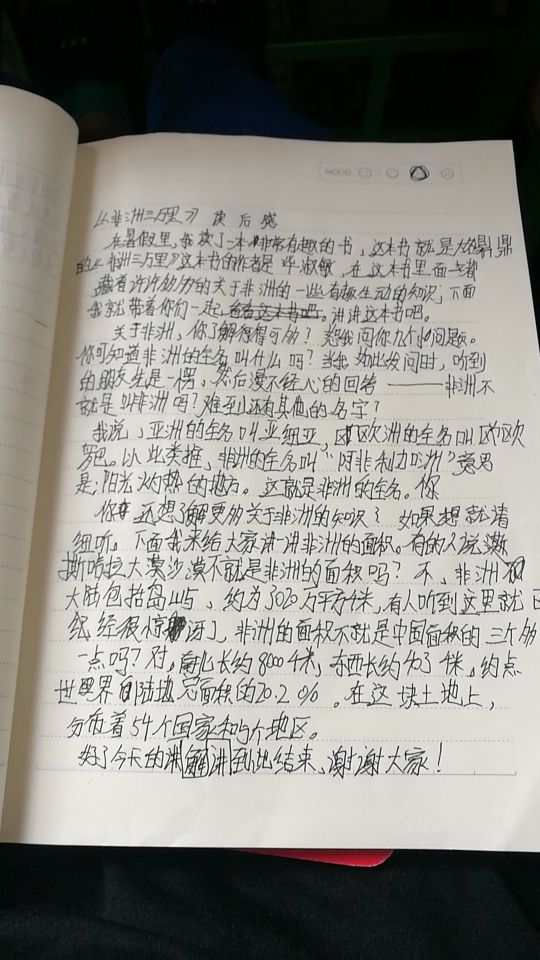 MOOD:
《非洲三万里》读后感
在暑假里,我读了一本非常有趣的书,这本书就是大名鼎鼎
的《非洲三万里》这本书的作者是毕淑敏,在这本书里面
藏着许许多多的关于非洲的一些有趣生动的知识,下面
我就带着你们一起,看看这本书吧。讲讲这本书吧。
关于非洲,你了解得得可多?我问你几个小问题。
你可知道非洲的全名叫什么吗?当我如此发问时,听到
的朋友先是一楞,然后漫不经心的回答——非洲不
就是叫非洲吗?难到还有其他的名字?
我说,亚洲的全名叫亚细亚,欧洲的全名叫欧
罗巴。以此类推,非洲的全名叫“阿非利加洲”意思
是,阳光灼热的地方。这就是非洲的全名。你
你还想了解更多关于非洲的知识?如果想就请
细听。下面我来给大家讲一讲非洲的面积。有的人说撒
斯哈拉大漠沙漠不就是非洲的面积吗?不,非洲
大陆包括岛屿,约为3020万平方千米,有人听到这里就已
经很惊讶了,非洲的面积不就是中国面积的三个多
一点吗?对,南北长约8000千米,东西长约7403千米,约占
世界陆地总面积的20.2%。在这块土地上,
分布着54个国家和5个地区。
好了今天的讲解讲到此结束,谢谢大家!